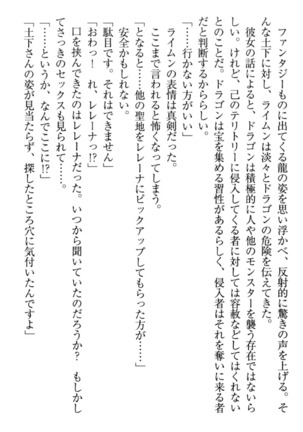 ファンタジーものに出てくる龍の姿を思い浮かべ、反射的に驚きの声を上げる。そ
んな土下に対し、ライムンは淡々とドラゴンの危険を伝えてきた。
彼女の話によると、ドラゴンは積極的に人や他のモンスターを襲う存在ではないら
しい。けれど、己のテリトリーに侵入してくる者に対しては容赦などしてはくれない
とのことだ。ドラゴンは宝を集める習性があるらしく、侵入者はそれを奪いに来る者
だと判断するからららしい。
「……行かない方がいい」
ライムンの表情は真剣だった。
ここまで言われると怖くなってしまう。
「となると……他の聖地をレレーナにピックアップしてもらった方が……」
安全かもしれない。
「駄目です。それはできません」
「おわっ！　れ、レレーナっ!?」
口を挟んできたのはレレーナだった。いつから聞いていたのだろうか？　もしかし
てさっきのセックスも見られて……。
「……というか、なんでここに!?」
「土下さんの姿が見当たらず、探したところ穴に気付いたんですよ」